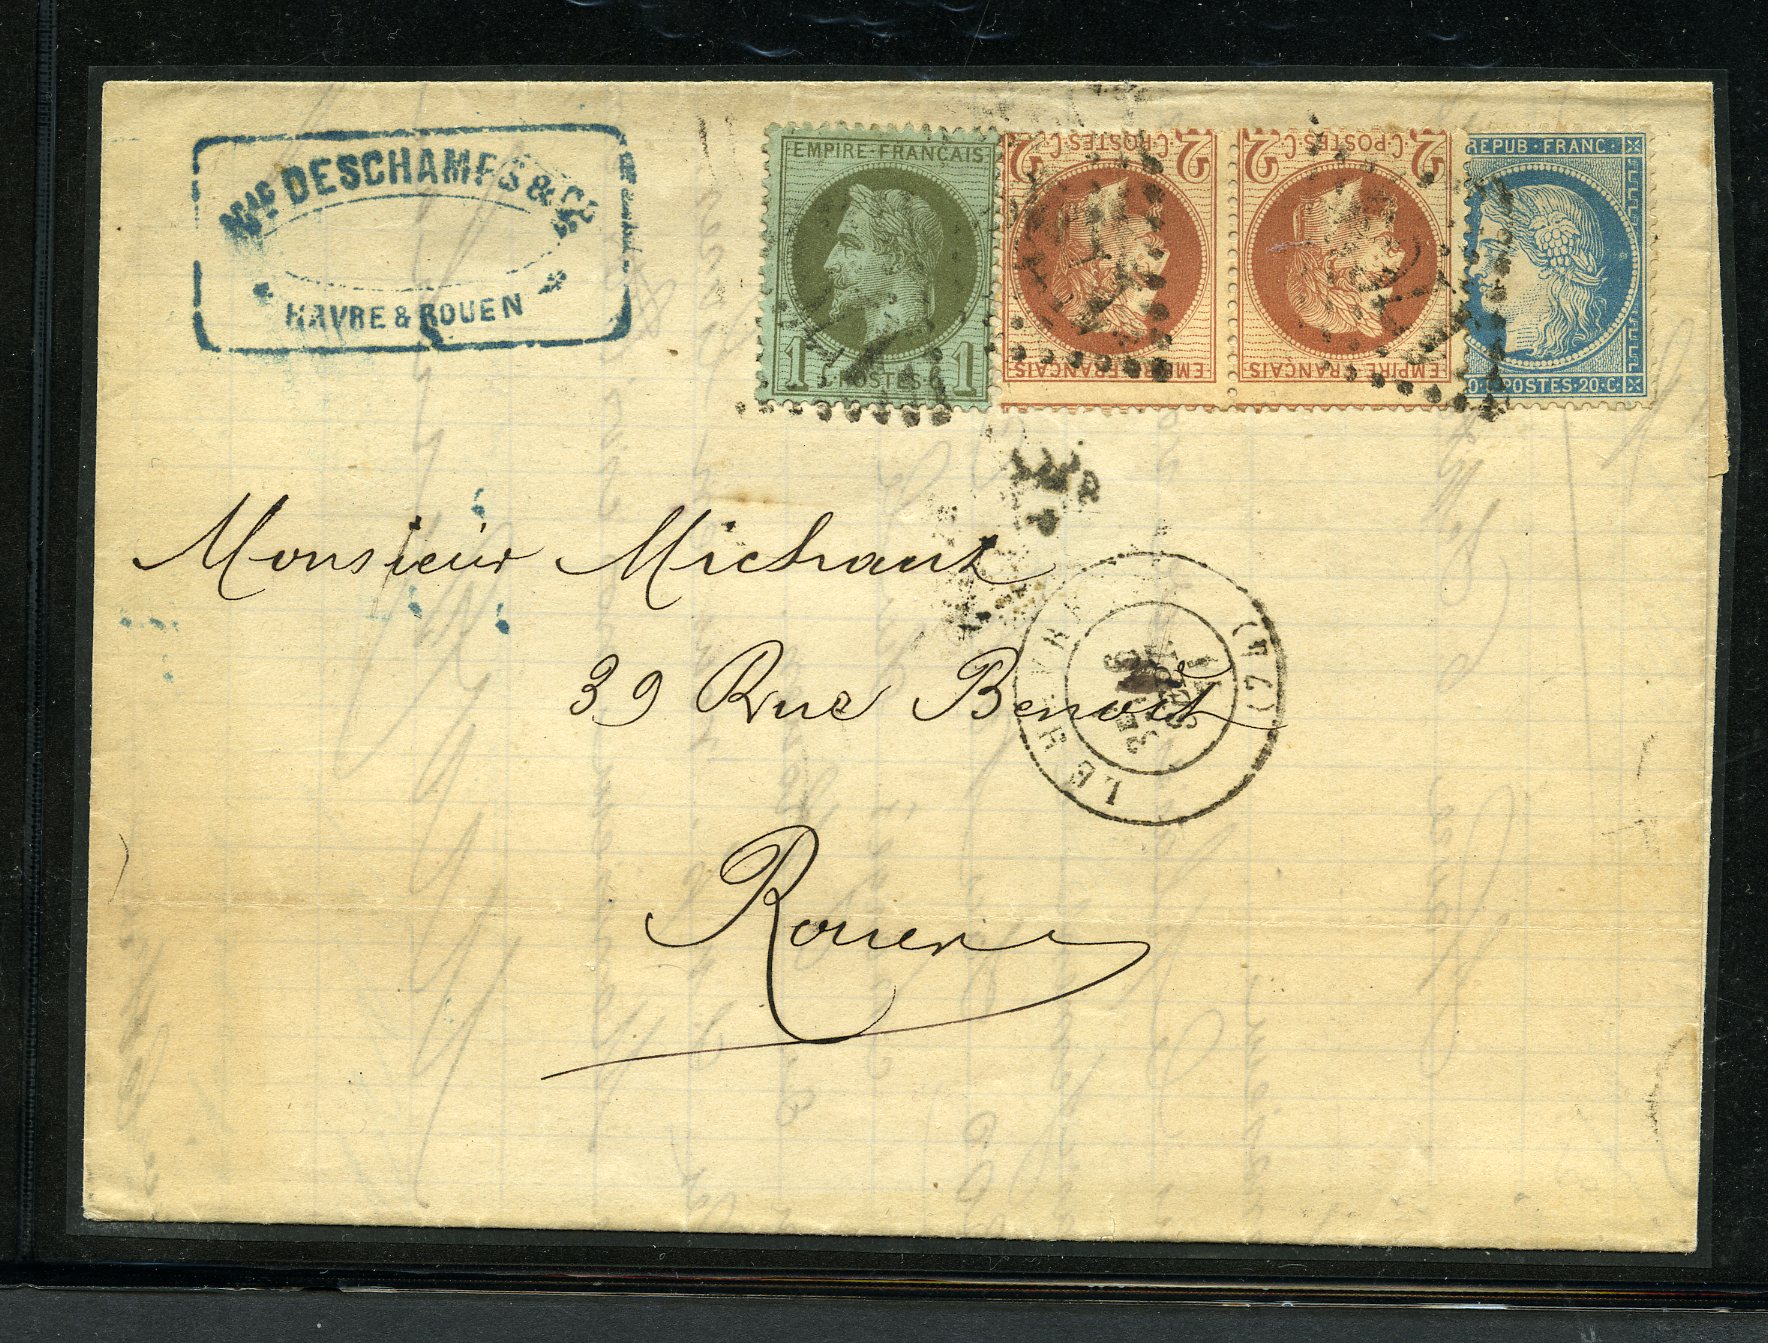 Mce DESCHAMPS & Cie
HAVRE & ROUEN
EMPIRE·FRANCAIS
1 C·POSTES·C 1
2 C·POSTES·C 2
EMPIRE·FRANÇAIS
2 C·POSTES·C 2
EMPIRE·FRANÇAIS
REPUB·FRANC·
POSTES·20·C·
Monsieur Michaux
39 Rue Benoit
Rouen
LE HAVRE (74)
3E
SEPT
71